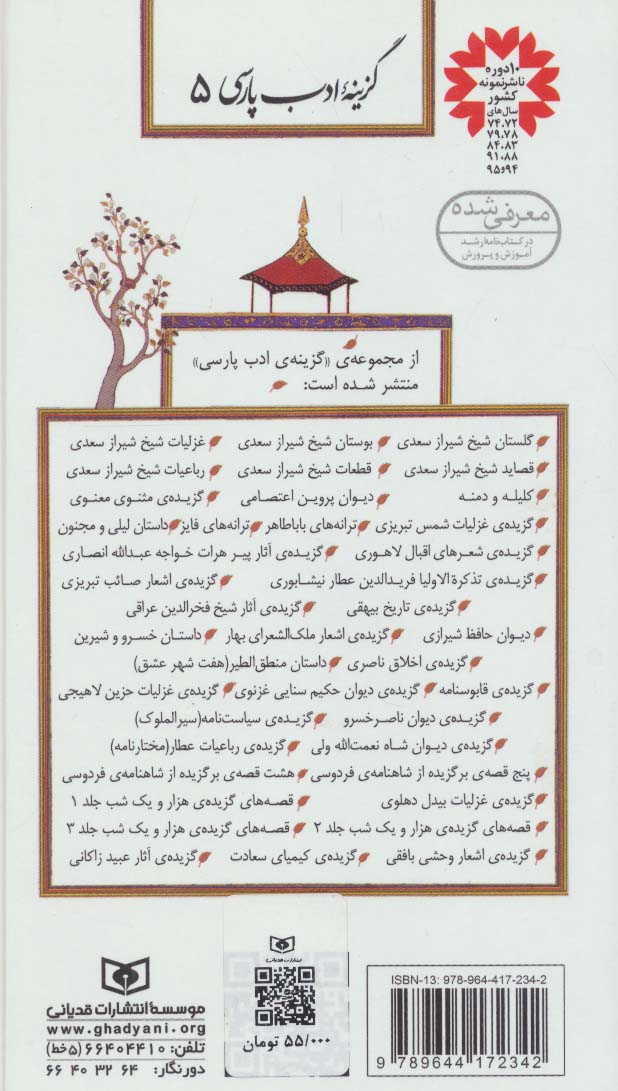 گزینهٔ ادب پارسی ۵
۱۰ دوره
ناشر نمونه
کشور
سال‌های
۷۴،۷۲
۷۹،۷۸
۸۴،۸۳
۹۱،۸۸
۹۴و۹۵
معرفی شده
در کتاب‌نامه رشد
آموزش و پرورش
از مجموعه‌ی «گزینه‌ی ادب پارسی»
منتشر شده است:
گلستان شیخ شیراز سعدی بوستان شیخ شیراز سعدی غزلیات شیخ شیراز سعدی
قصاید شیخ شیراز سعدی قطعات شیخ شیراز سعدی رباعیات شیخ شیراز سعدی
کلیله و دمنه دیوان پروین اعتصامی گزیده‌ی مثنوی معنوی
گزیده‌ی غزلیات شمس تبریزی ترانه‌های باباطاهر ترانه‌های فایز داستان لیلی و مجنون
گزیده‌ی شعرهای اقبال لاهوری گزیده‌ی آثار پیر هرات خواجه عبدالله انصاری
گزیده‌ی تذکرة الاولیا فریدالدین عطار نیشابوری گزیده‌ی اشعار صائب تبریزی
گزیده‌ی تاریخ بیهقی گزیده‌ی آثار شیخ فخرالدین عراقی
دیوان حافظ شیرازی گزیده‌ی اشعار ملک‌الشعرای بهار داستان خسرو و شیرین
گزیده‌ی اخلاق ناصری داستان منطق‌الطیر(هفت شهر عشق)
گزیده‌ی قابوسنامه گزیده‌ی دیوان حکیم سنایی غزنوی گزیده‌ی غزلیات حزین لاهیجی
گزیده‌ی دیوان ناصرخسرو گزیده‌ی سیاست‌نامه(سیرالملوک)
گزیده‌ی دیوان شاه نعمت‌الله ولی گزیده‌ی رباعیات عطار(مختارنامه)
پنج قصه‌ی برگزیده از شاهنامه‌ی فردوسی هشت قصه‌ی برگزیده از شاهنامه‌ی فردوسی
گزیده‌ی غزلیات بیدل دهلوی قصه‌های گزیده‌ی هزار و یک شب جلد ۱
قصه‌های گزیده‌ی هزار و یک شب جلد ۲ قصه‌های گزیده‌ی هزار و یک شب جلد ۳
گزیده‌ی اشعار وحشی بافقی گزیده‌ی کیمیای سعادت گزیده‌ی آثار عبید زاکانی
ISBN-13: 978-964-417-234-2
9 789644 172342
انتشارات قدیانی
۵۵/۰۰۰ تومان
موسسهٔ انتشارات قدیانی
www.ghadyani.org
تلفن: ۶۶۴۰۴۴۱۰ (۵خط)
دورنگار: ۶۶۴۰۳۲۶۴